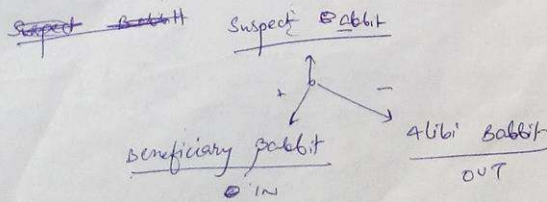 Suspect Babbitt
Suspect Babbit
+ -
Beneficiary Babbit
Alibi Babbit
IN
OUT